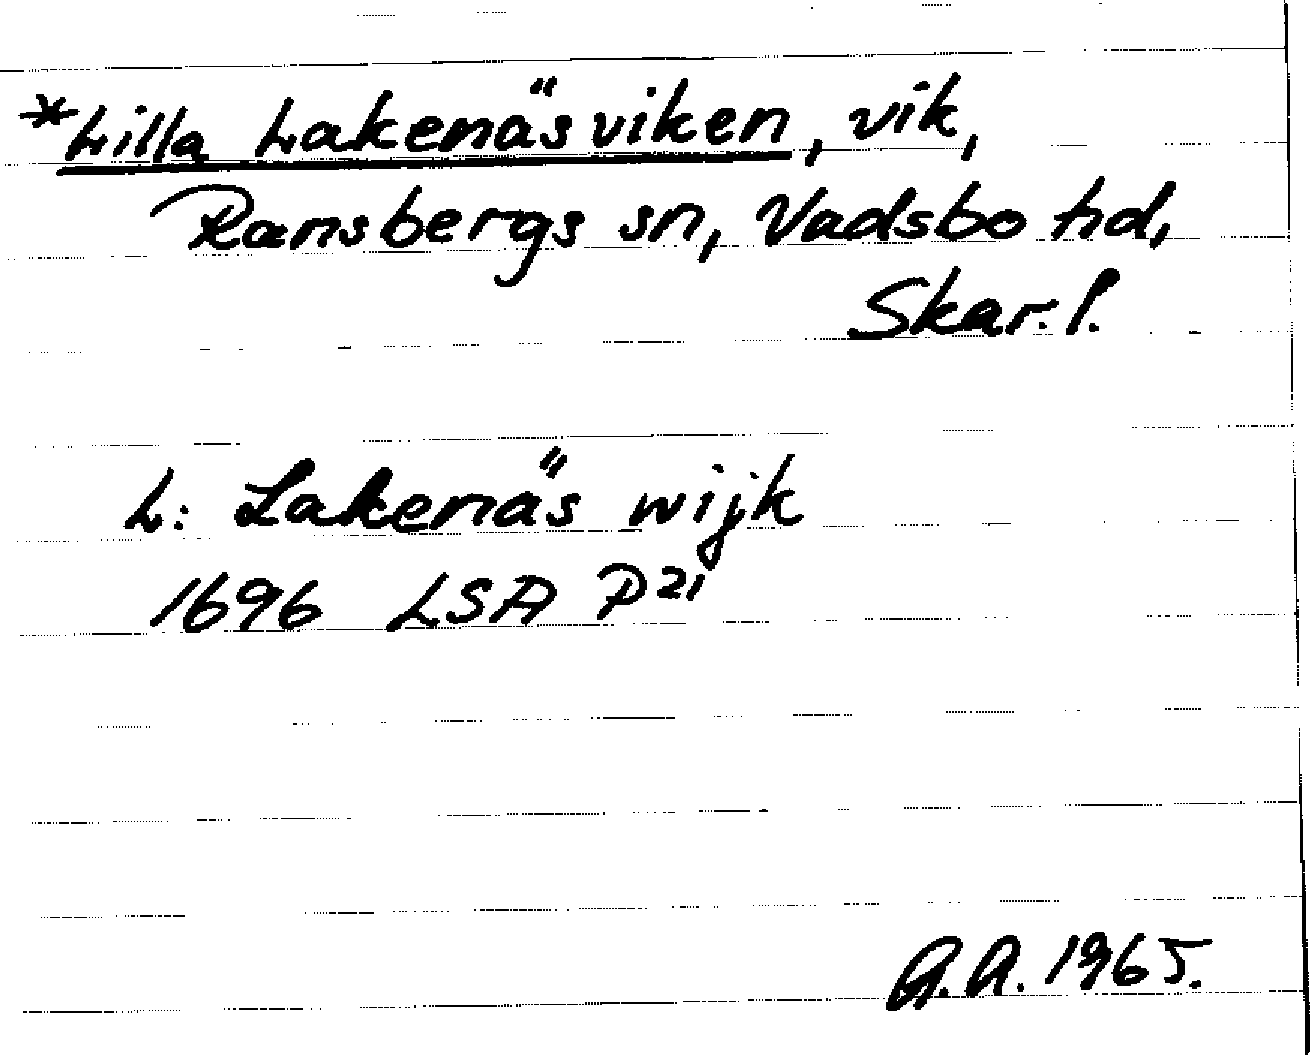 *Lilla Lakenäsviken, vik,
Ransbergs sn, Vadsbo hd,
Skar. l.
L: Lakenäs wijk
1696 LSA P 21
A.A. 1965.